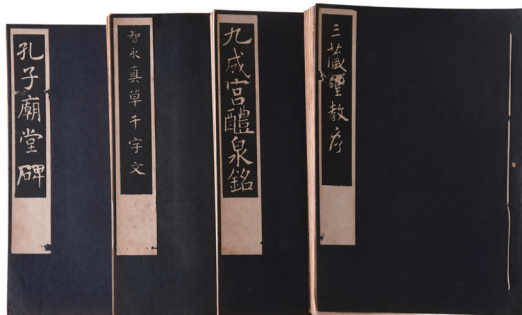 孔子廟堂碑
智永真草千字文
九成宮醴泉銘
三藏聖教序